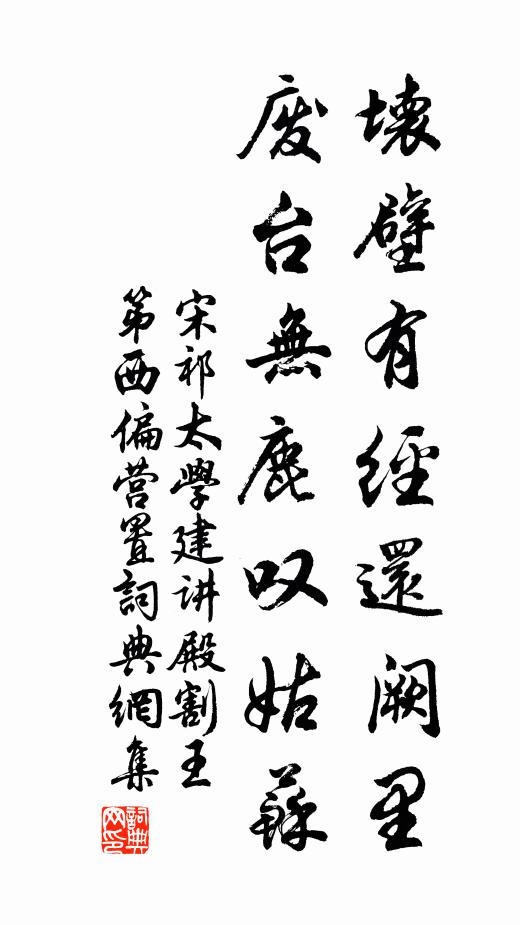 壞壁有經還阙里
废台無鹿叹姑蘇
宋祁太學建讲殿割王
第西偏营置詞典網集
詞典
网印